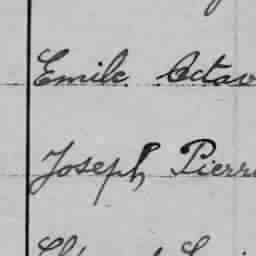 Emile Octav
Joseph Pierre